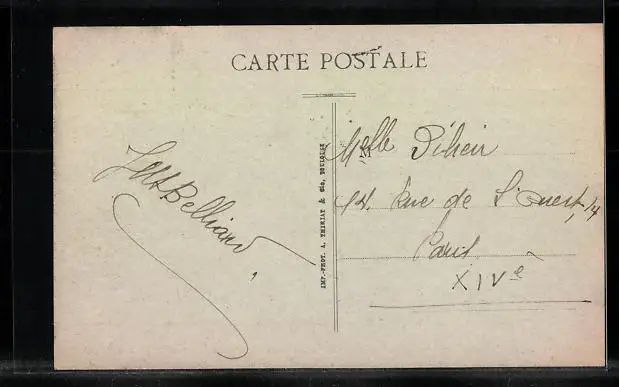 CARTE POSTALE
Belliard
IMP.-PHOT. A. THIRIAT & Cie, TOULOUSE
M
Melle
Rue de L'Ouest, 14
Paris
XIVe